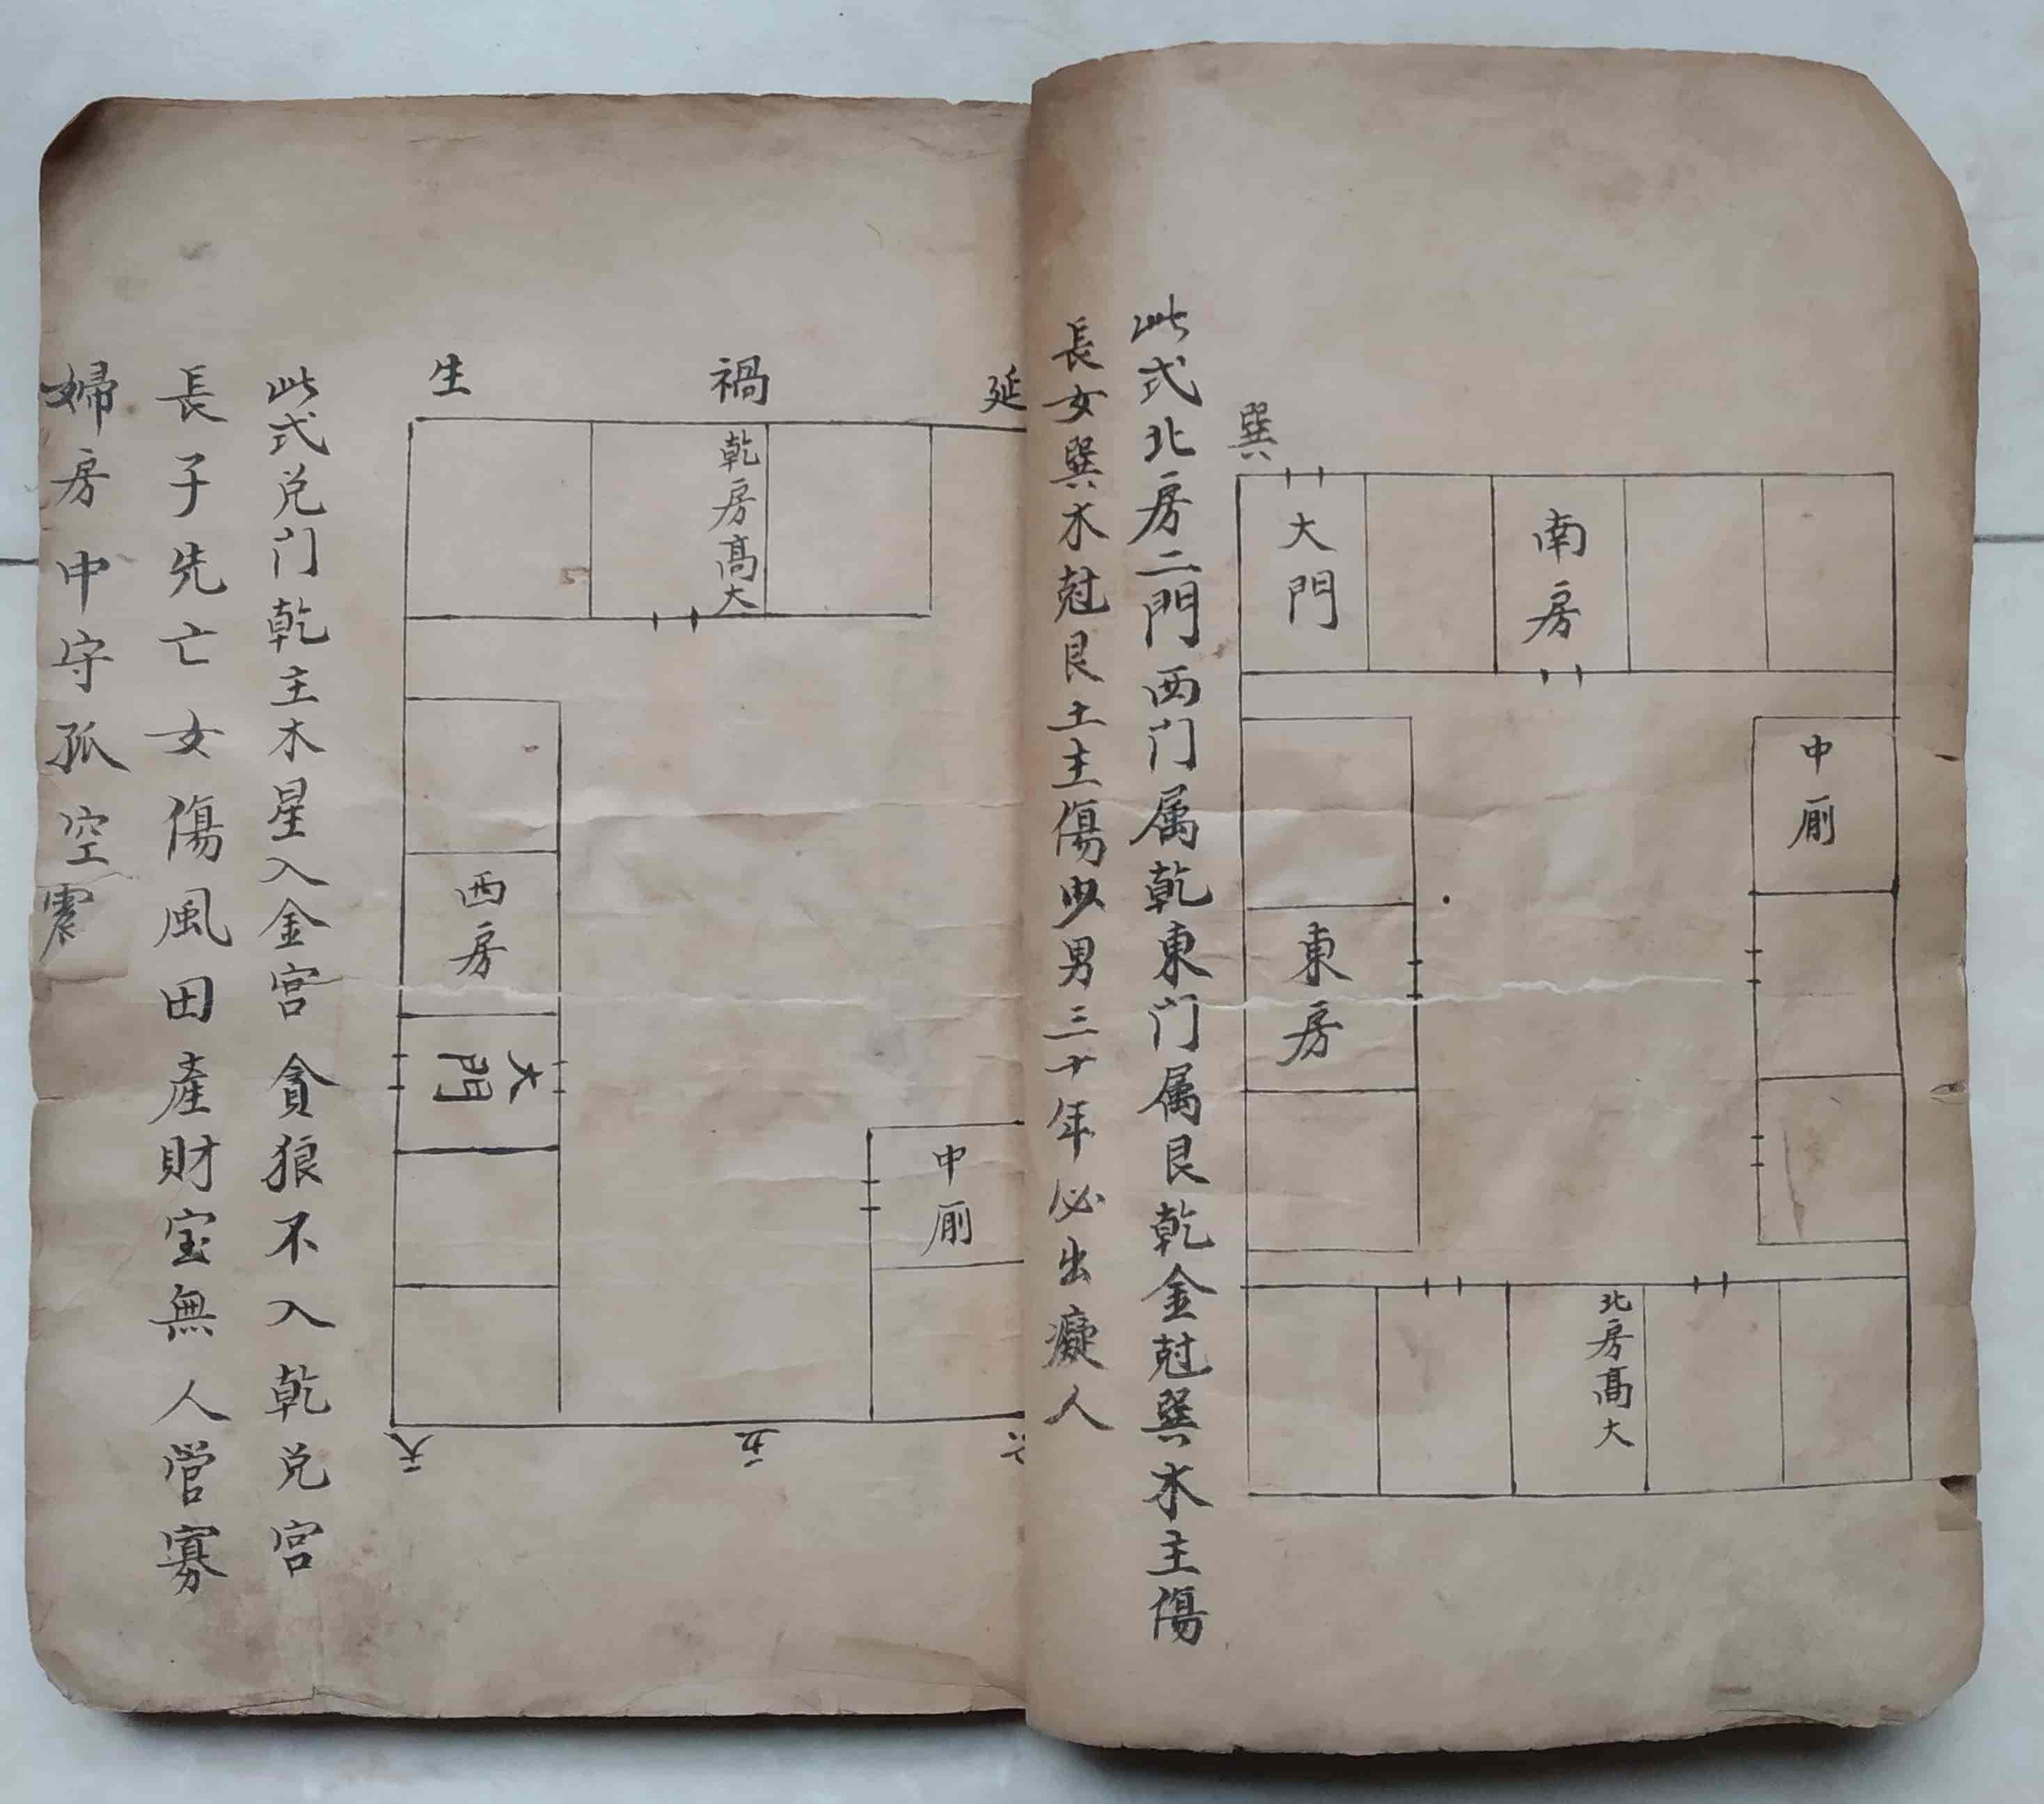 巽
大門
南房
中廁
東房
北房高大
此式北房二門西门属乾東门属艮乾金尅巽木主傷
長女巽木尅艮土主傷少男三十年必出癡人
延
禍
生
乾房高大
西房
大門
中廁
六
五
天
此式兑门乾主木星入金宫貪狼不入乾兑宫
長子先亡女傷風田產財宝無人营寡
婦房中守孤空